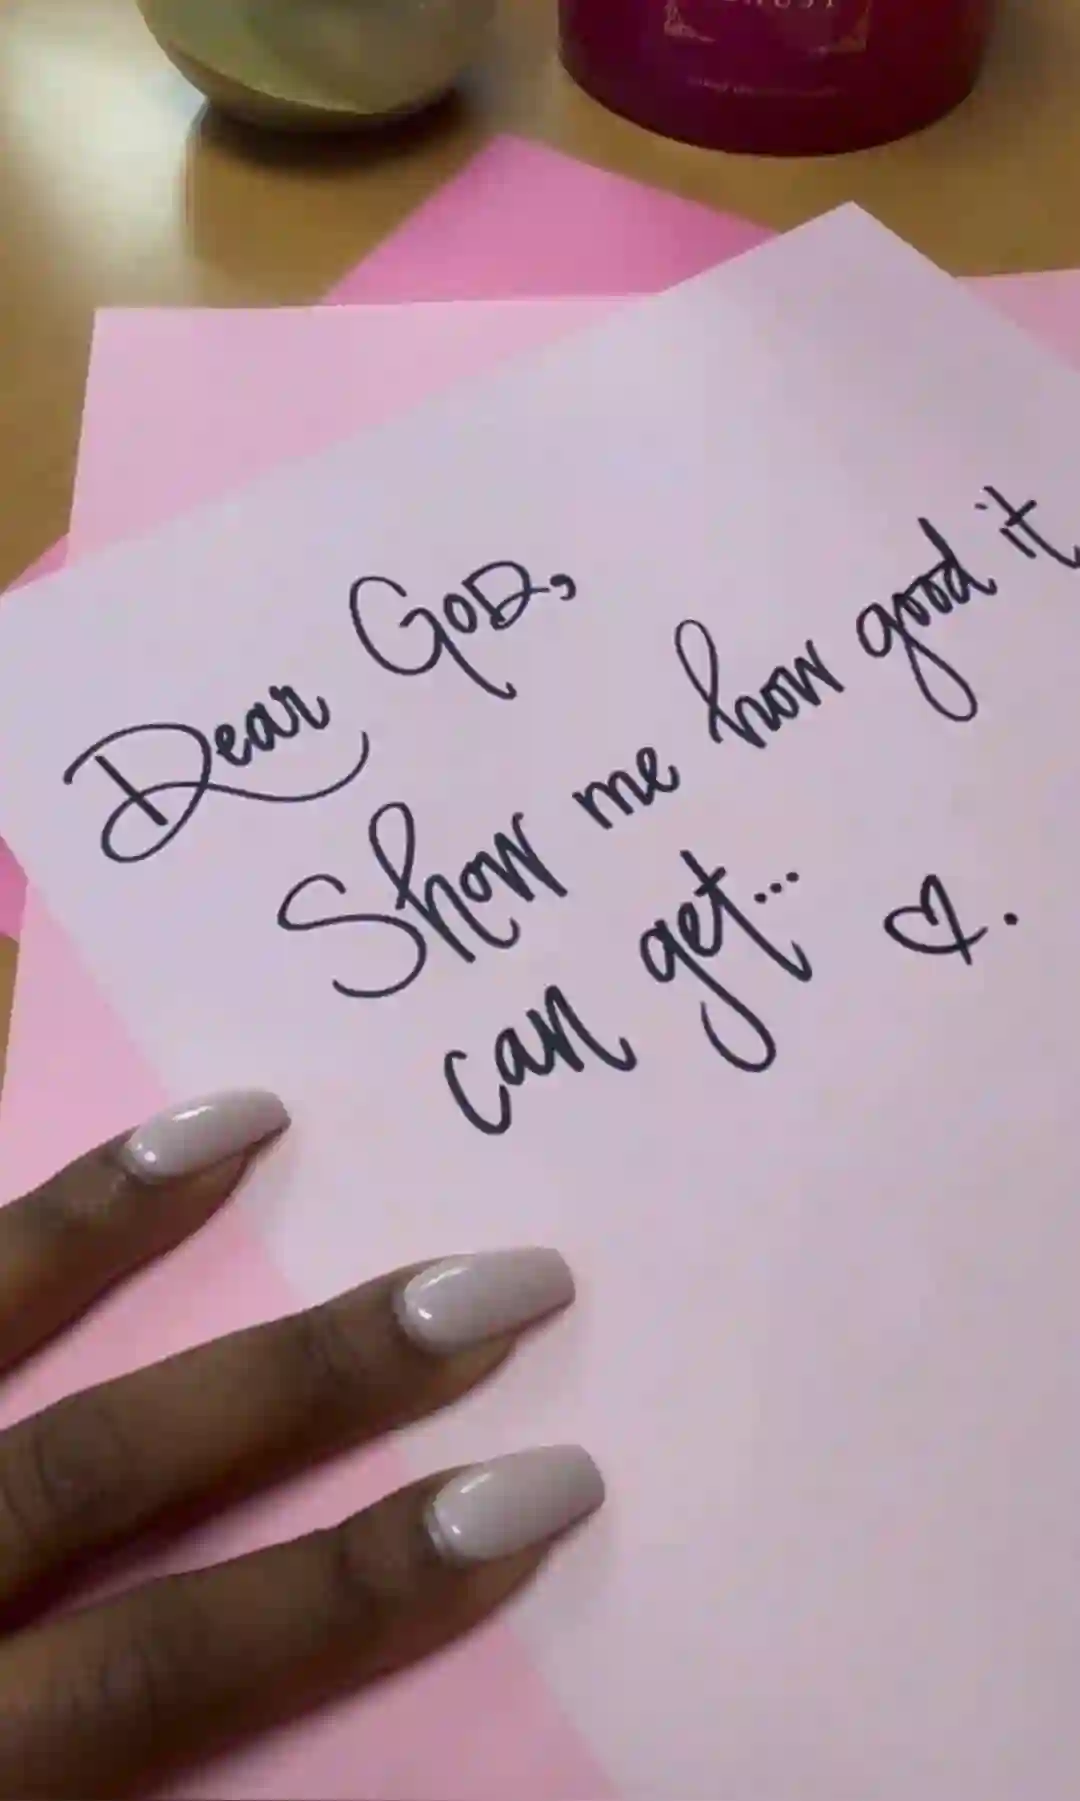 Dear God,
Show me how good it
can get... ♡.